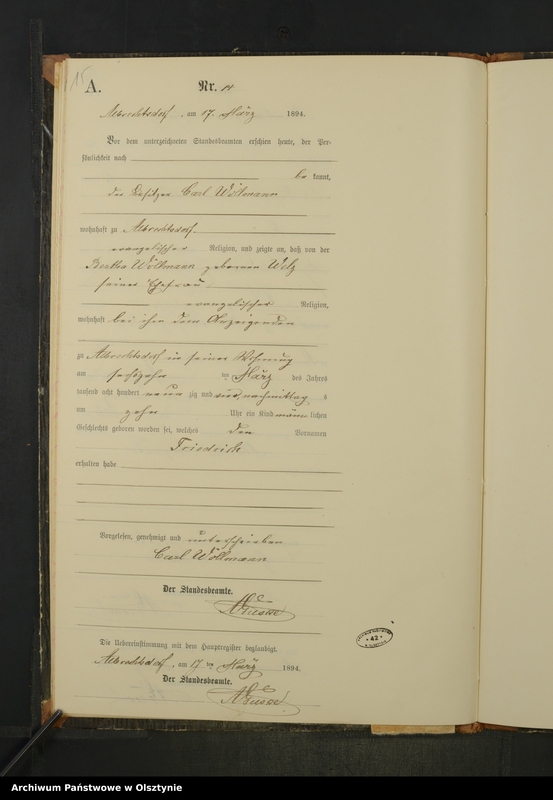 15
A.
Nr. 14
Albrechtsdorf, am 17. März 1894.
Vor dem unterzeichneten Standesbeamten erschien heute, der Per-
sönlichkeit nach
be kannt,
der Besitzer Carl Wöllmann
wohnhaft zu Albrechtsdorf
evangelischer Religion, und zeigte an, daß von der
Bertha Wöllmann geborenen Welz
seiner Ehefrau
evangelischer Religion,
wohnhaft bei ihm dem Anzeigenden
zu Albrechtsdorf in seiner Wohnung
am sechszehn ten März des Jahres
tausend acht hundert neun zig und vier, nachmittag s
um zehn Uhr ein Kind männ lichen
Geschlechts geboren worden sei, welches den Vornamen
Friedrich
erhalten habe
Vorgelesen, genehmigt und unterschrieben
Carl Wöllmann
Der Standesbeamte.
Die Uebereinstimmung mit dem Hauptregister beglaubigt.
Albrechtsdorf, am 17 ten März 1894.
Der Standesbeamte.
42
Archiwum Państwowe w Olsztynie